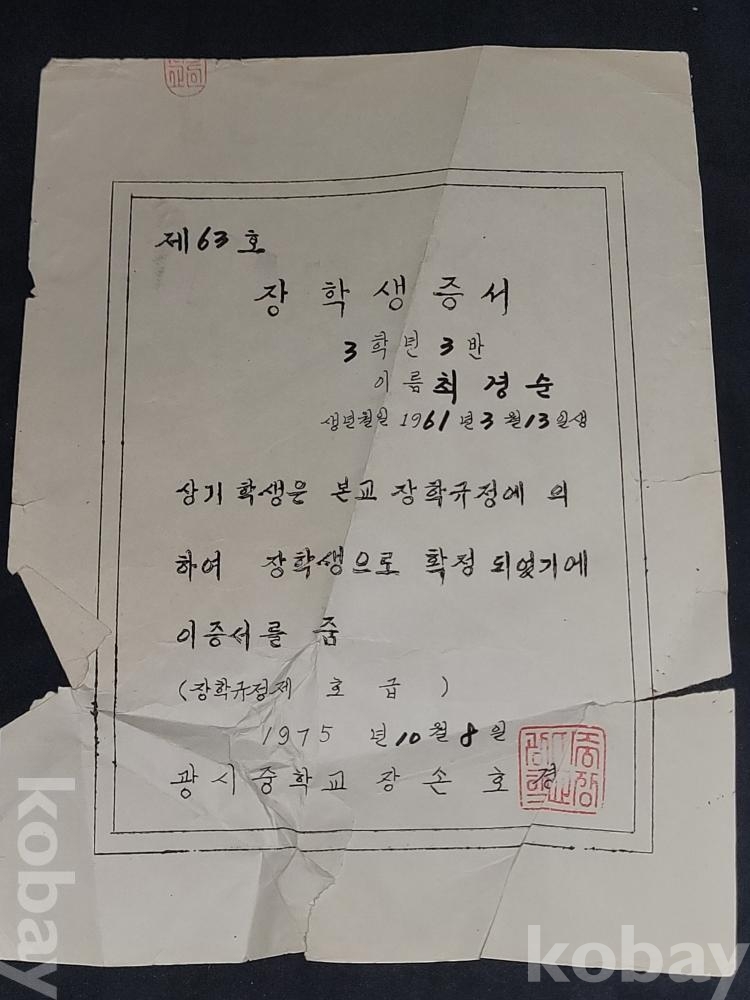 제 63 호
장 학 생 증 서
3 학 년 3 반
이 름 최 경 순
생년월일 1961 년 3 월 13 일생
상기 학생은 본교 장학규정에 의
하여 장학생으로 확정 되였기에
이증서를 줌
(장학규정제 호 급 )
1975 년 10 월 8 일
광 시 중 학 교 장 손 호 경
kobay
kobay